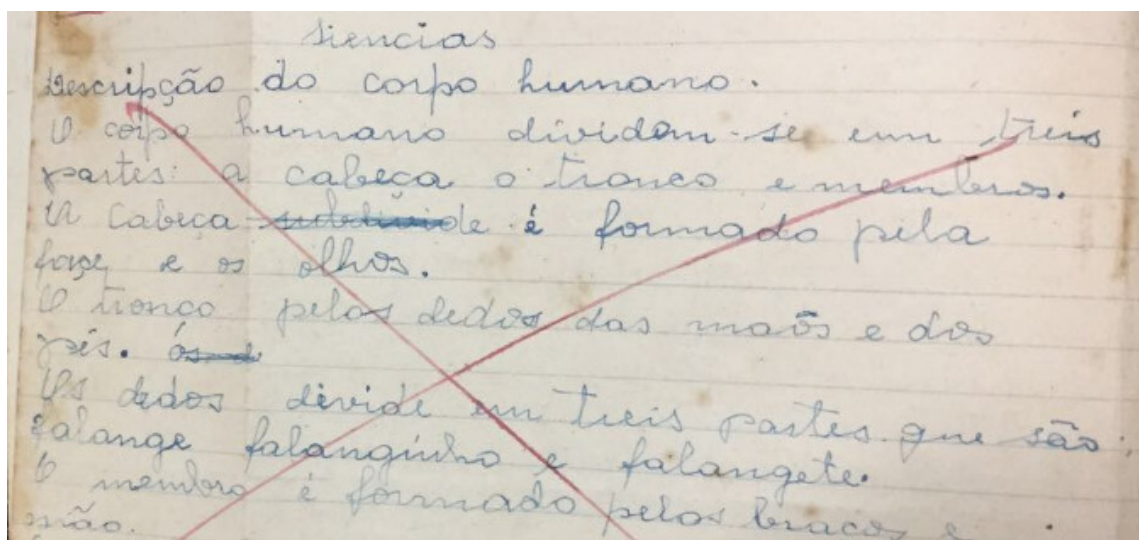 siencias
Descripção do corpo humano.
O corpo humano dividem-se emm treis
partes: a cabeça o tronco e membros.
A Cabeça subdivide é formado pela
façe e os olhos.
O tronco pelos dedos das maõs e dos
pés. ós
Os dedos devide em treis partes que são:
falange falanginho e falangete.
O membro é formado pelos bracos e
mão.